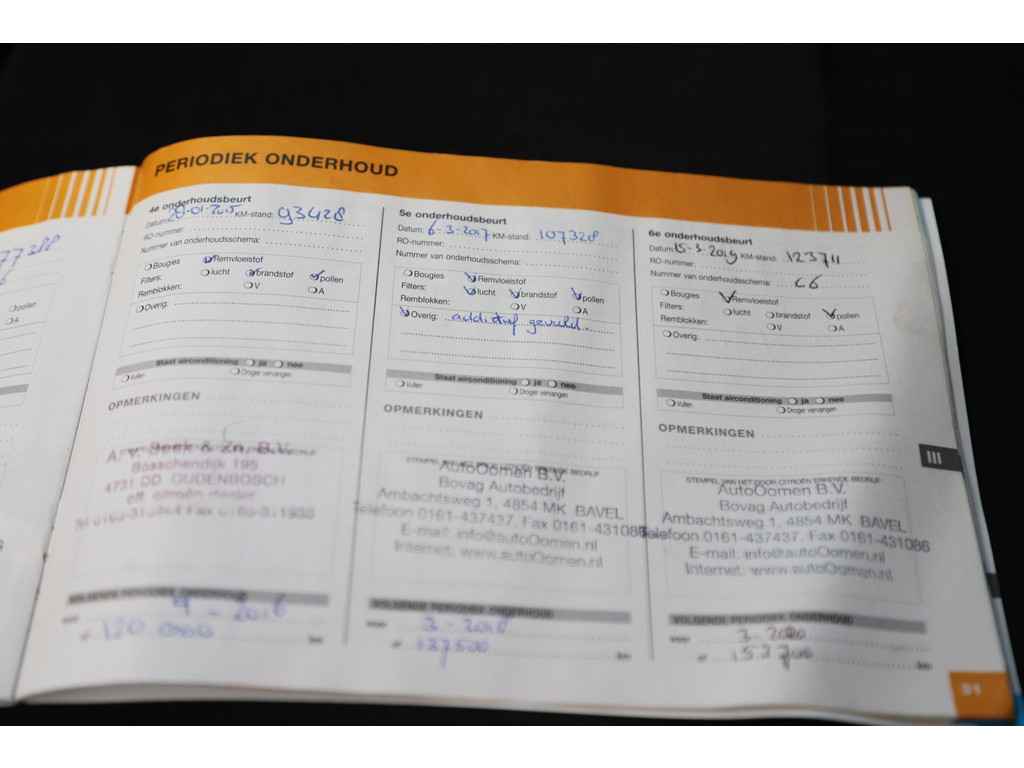 77288
pollen
A
PERIODIEK ONDERHOUD
4e onderhoudsbeurt
Datum: 28-01-2015 KM-stand: 93428
RO-nummer:
Nummer van onderhoudsschema:
Bougies Remvloeistof
Filters: lucht brandstof pollen
Remblokken: V A
Overig:
Staat airconditioning ja nee
Vullen Droger vervangen
OPMERKINGEN
A. v. Beek & Zn. B.V.
Bosschendijk 195
4731 DD OUDENBOSCH
VOLGENDE PERIODIEK ONDERHOUD
2016
of 120.000 km
5e onderhoudsbeurt
Datum: 6-3-2017 KM-stand: 107328
RO-nummer:
Nummer van onderhoudsschema:
Bougies Remvloeistof
Filters: lucht brandstof pollen
Remblokken: V A
Overig: additief gevuld.
Staat airconditioning ja nee
Vullen Droger vervangen
OPMERKINGEN
STEMPEL VAN HET DOOR CITROËN ERKENDE BEDRIJF
AutoOomen B.V.
Bovag Autobedrijf
Ambachtsweg 1, 4854 MK BAVEL
Telefoon 0161-437437, Fax 0161-431086
E-mail: info@autoOomen.nl
Internet: www.autoOomen.nl
VOLGENDE PERIODIEK ONDERHOUD
voor 3-2018
of 137500 km
6e onderhoudsbeurt
Datum: 15-3-2019 KM-stand: 123711
RO-nummer:
Nummer van onderhoudsschema: C6
Bougies Remvloeistof
Filters: lucht brandstof pollen
Remblokken: V A
Overig:
Staat airconditioning ja nee
Vullen Droger vervangen
OPMERKINGEN
STEMPEL VAN HET DOOR CITROËN ERKENDE BEDRIJF
AutoOomen B.V.
Bovag Autobedrijf
Ambachtsweg 1, 4854 MK BAVEL
Telefoon 0161-437437, Fax 0161-431086
E-mail: info@autoOomen.nl
Internet: www.autoOomen.nl
VOLGENDE PERIODIEK ONDERHOUD
voor 3-2020
of 153700 km
III
31